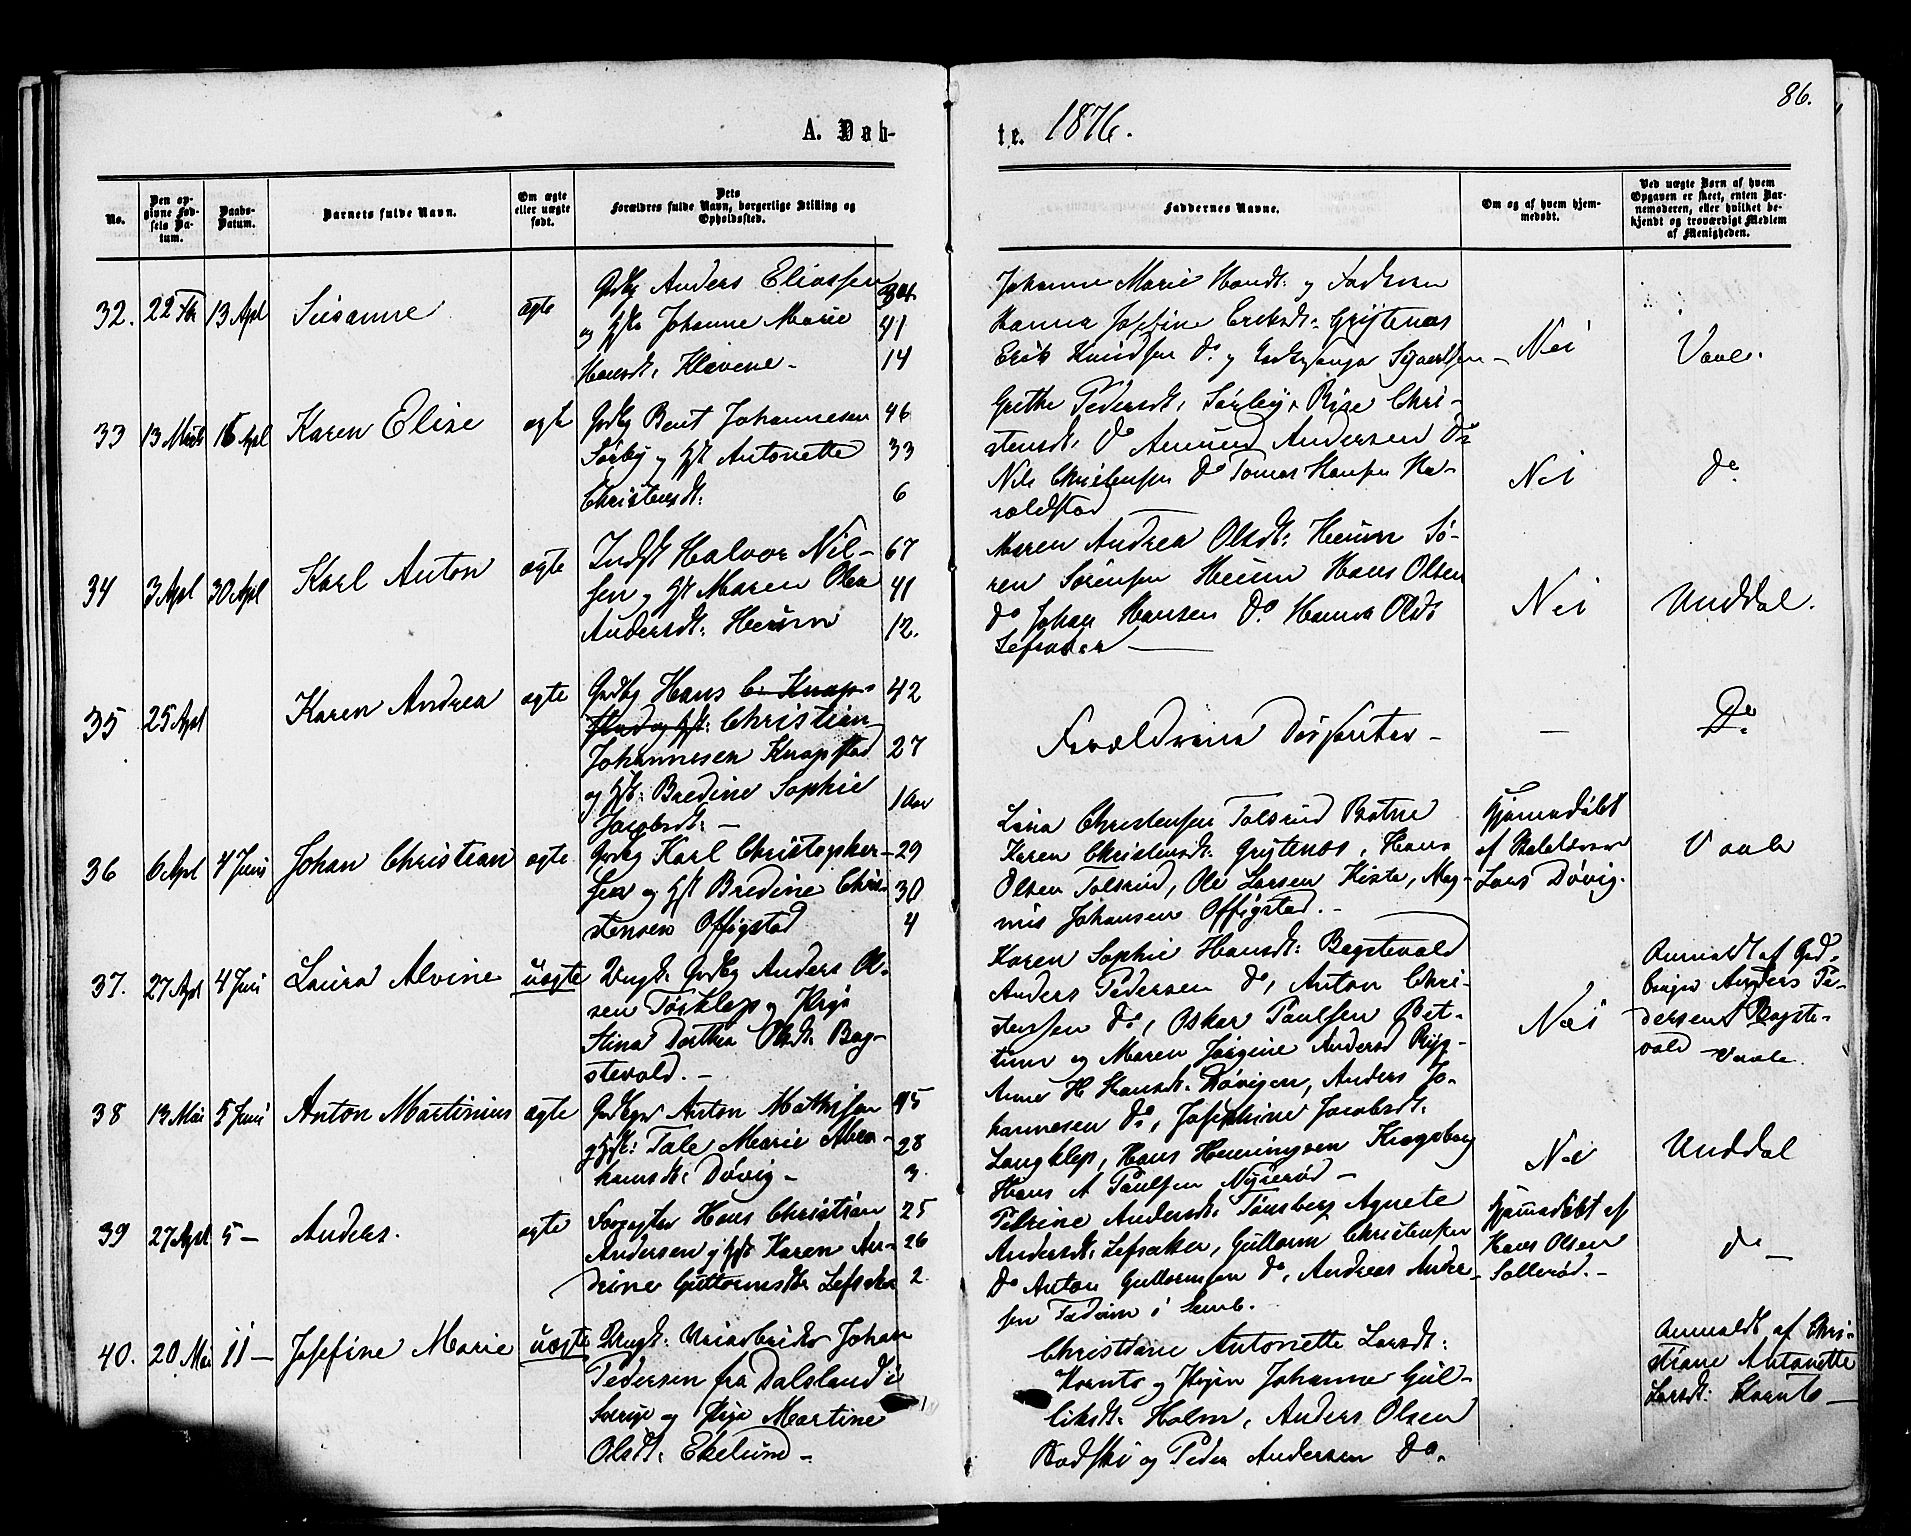 86.
A. Døb-
te. 1876.
No.
Den op-
givne Fød-
sels Da-
tum.
Daabs-
Datum.
Barnets fulde Navn.
Om ægte
eller uægte
født.
Dets
Forældres fulde Navn, borgerlige Stilling og
Opholdssted.
Faddernes Navne.
Om og af hvem hjem-
medøbt.
Ved uægte Børn af hvem
Opgaven er skeet, enten Bar-
nemoderen, eller hvilket be-
kjendt og troværdigt Medlem
af Menigheden.
32. 22 Fb 13 Apl Susanne ægte
Grdbg Anders Eliassen
og Johanne Marie 41
Hansdt. Klevene - 14
Johanne Marie Handt: og
Hanna Josefine Eriksdt: Grytenæs
Erik Knudsen do og
Nei
Vaale.
33 13 Marts 16 Apl Karen Elise ægte
Grdbg Bent Johannesen 46
Sørby og Hst Antonette 33
Christensdt: 6
Grethe Pedersdt, Sørby, Chri-
stensdt. Do Amund Andersen Do
Nils Christensen do Tomas Hansen Ha-
roldstad
Nei
do
34 3 Apl 30 Apl Karl Anton ægte
Indst Halvor Nil- 67
sen og Hst Maren Olea 41
Andersdt: Heum 12.
Maren Andrea Olsdt: Heum Sø-
ren Sørensen Heum Hans Olsen
do Johan Hansen Do. Hanna Olsdt
Lefsaker —
Nei
Unddal.
35 25 Apl Karen Andrea ægte
Grdbg Hans C. Knap- 42
stad og Hst: Christian
Johannesen Knapstad 27
og Hst: Bredine Sophie 1 Aar
Jacobsdt: -
Forældrene Dissenter -
-
Do.
36 6 Apl 4 Juni Johan Christian ægte
Grdbg Karl Christopher- 29
sen og Hst Bredine Chri- 30
stensen Offigstad 4
Lina Christensen Tolsrud
Karen Christensdt: Grytenæs, Hans
Olsen Tolsrud, Ole Larsen Kiste, Mag-
nus Johansen Offigstad. -
Hjemmedøbt
af Skolelærer
Lars Døvig.
Vaale
37. 27 Apl 4 Juni Laura Alvine uægte
Ungk: Grdbg Anders Ol-
sen Torklep og Pige
Stina Dorthea Olsdt: Bag-
stevold. -
Karen Sophie Hansdt: Bagstevold
Anders Pedersen do, Anton Chri-
stensen do, Oskar Paulsen Bet-
tum og Maren Jørgine Andersd
Nei
Anmeldt af Grd-
bruger Anders Pe-
dersen Bagste-
vold - Vaale.
38 13 Mai 5 Juni Anton Martinius ægte
Grdbgr Anton Mathisen 45
og Hst: Tale Marie Abra- 28
hamsdt: Døvig - 3.
Anne H Hansdt. Døvigen, Anders Jo-
hannesen do, Josephine Jacobsdt:
Langklep, Hans Henningsen Krogsborg
Hans A Paulsen Nyrerød -
Nei
Unddal
39 27 Apl 5 - Anders. ægte
Forpagter Hans Christian 25
Andersen og Hst Karen An- 26
drine Guttormsdt: Lefsaker 2.
Petrine Andersdt: Tønsberg Agnete
Andersdt: Lefsaker, Guttorm Christensen
do Anton Guttormsen do, Andreas Ander-
sen Fadum i Semb.
Hjemmedøbt af
Hans Olsen
Sollerød. -
do -
40. 20 Mai 11 - Josefine Marie uægte
Ungk: Johan
Pedersen fra Dalsland i
Sverige og Pige Martine
Olsdt: Ekelund -
Christiane Antonette Larsdt:
Kornts og Pigen Johanne Gul-
liksdt: Holm, Anders Olsen
Bodski og Peder Andersen Do.
Anmeldt af Chri-
stiane Antonette
Larsdt: Kornts -